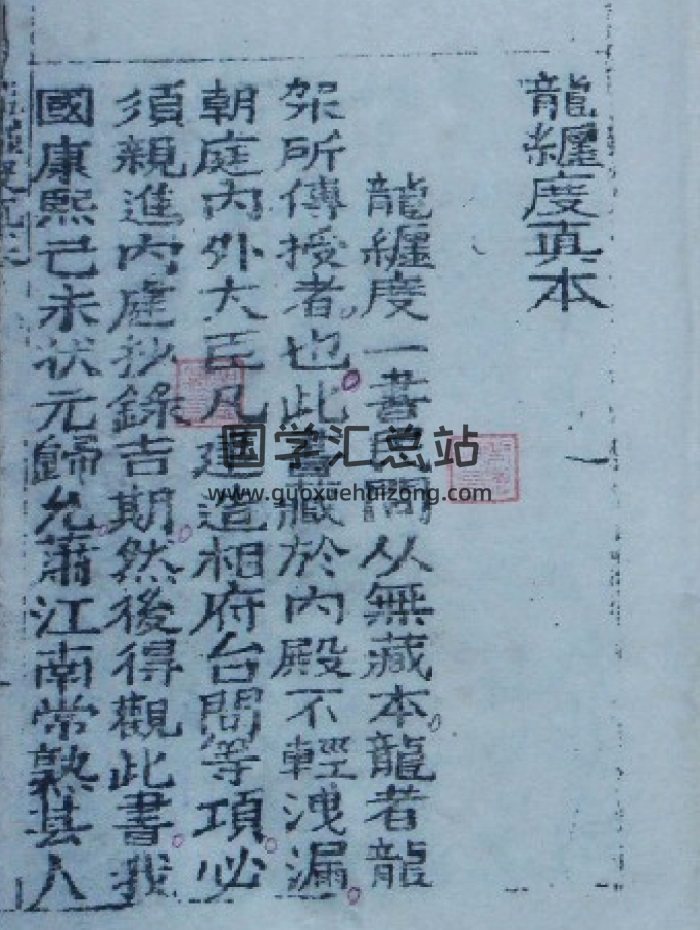 龍纏度真本
龍纏度一書民間从無藏本龍者龍
架所傳授者也此書藏於内殿不輕洩漏
朝庭内外大臣凡建造相府台閣等項必
須親進内庭抄錄吉期然後得觀此書我
國康熙己未状元歸允蕭江南常熟县人
国学汇总站
www.guoxuehuizong.com